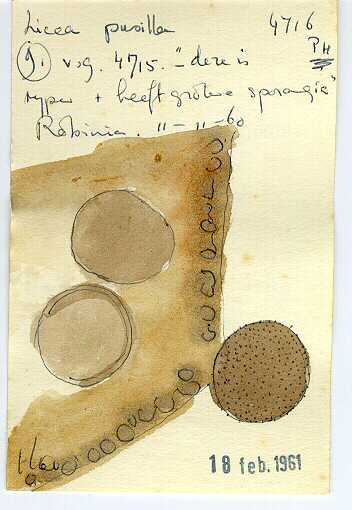 Licea pusilla 4716
9. vg. 4715. "deze is PH
rijper + heeft grotere sporangiën"
Robinia. 11-11-60
18 feb. 1961